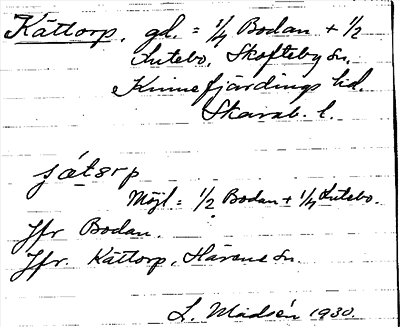 Kättorp, gd. = 1/4 Bodan + 1/2
Lutebo, Skofteby Sn.
Kinnefjärdings hd.
Skarab. l.
Möjl = 1/2 Bodan + 1/4 Lutebo.
Jfr Bodan.
Jfr. Kättorp, Härene Sn.
L. Madsén 1930.